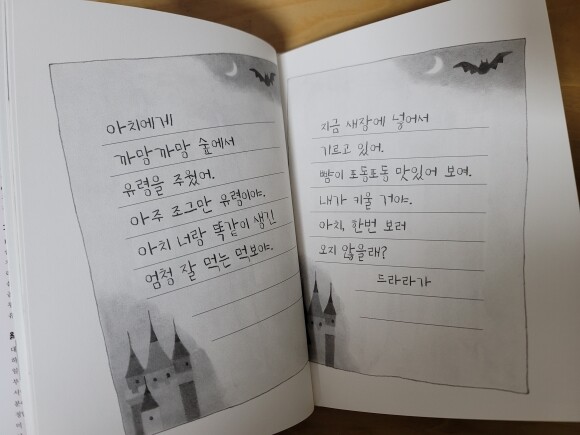 아치에게
까망까망 숲에서
유령을 주웠어.
아주 조그만 유령이야.
아치 너랑 똑같이 생긴
엄청 잘 먹는 먹보야.
지금 새장에 넣어서
기르고 있어.
뺨이 포동포동 맛있어 보여.
내가 키울 거야.
아치, 한번 보러
오지 않을래?
드라라가